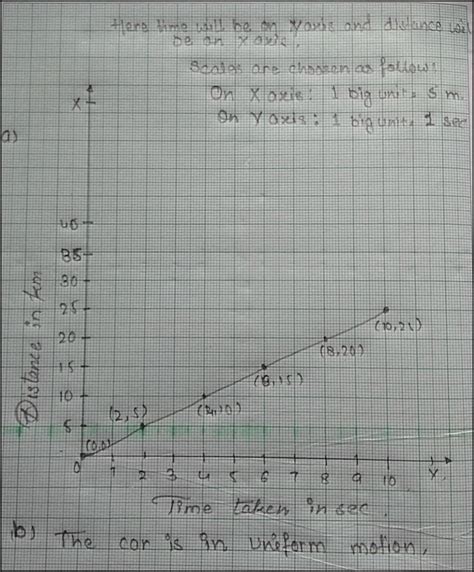 Here time will be on Y axis and distance will
be on X axis.
Scales are choosen as follow:
On X axis: 1 big unit = 5 m
On Y axis: 1 big unit = 1 sec
a)
X
40
35
30
25
20
15
10
5
0
Distance in km
(0,0)
(2,5)
(4,10)
(6,15)
(8,20)
(10,25)
1 2 3 4 5 6 7 8 9 10 Y
Time taken in sec.
b) The car is in uniform motion,